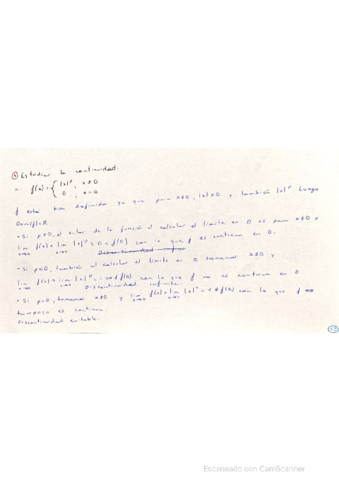 Estudiar la continuidad.
a. f(x) = { |x|^p, x≠0
0, x=0
f está bien definida ya que para x≠0, |x|>0 y también |x|^p. Luego
Dom f = R.
• Si p>0, el valor de la función al calcular el límite en 0 es para x≠0 y
lim x→0 f(x) = lim x→0 |x|^p = 0 = f(0) con lo que f es continua en 0.
• Si p<0, también al calcular el límite en 0 tomamos x≠0 y
lim x→0 f(x) = lim x→0 |x|^p = +∞ ≠ f(0) con lo que f no es continua en 0
Discontinuidad infinita.
• Si p=0, tomamos x≠0 y lim x→0 f(x) = lim x→0 |x|^0 = 1 ≠ f(0) con lo que f
tampoco es continua.
Discontinuidad evitable.
Escaneado con CamScanner